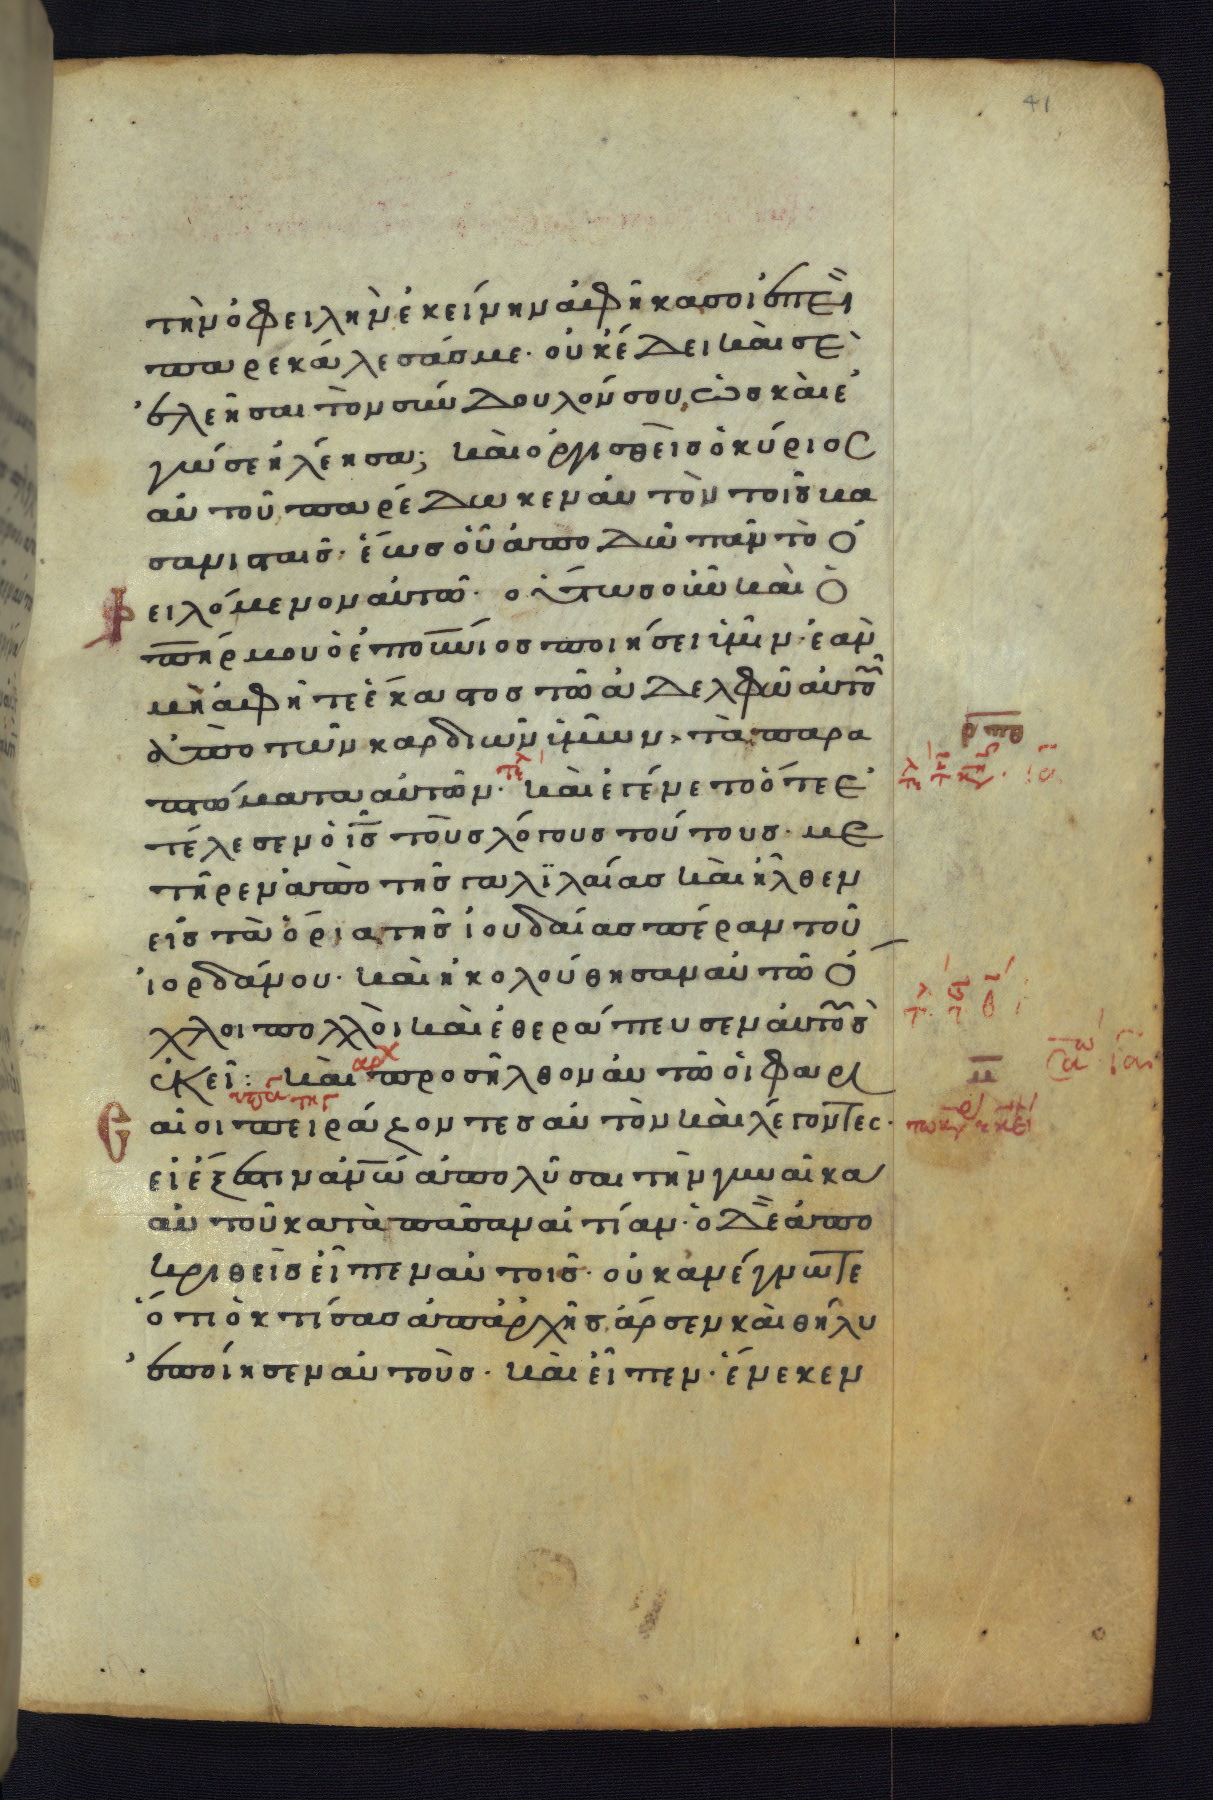 41
τὴν ὀφειλὴν ἐκείνην ἀφῆκά σοι ἐπεὶ
παρεκάλεσάς με· οὐκ ἔδει καὶ σὲ
ἐλεῆσαι τὸν σύνδουλόν σου, ὡς καὶ ἐ
γώ σε ἠλέησα; καὶ ὀργισθεὶς ὁ κύριος
αὐτοῦ παρέδωκεν αὐτὸν τοῖς βα
σανισταῖς· ἕως οὗ ἀποδῶ πᾶν τὸ ὀ
φειλόμενον αὐτῶ· οὕτως οὖν καὶ ὁ
π̅η̅ρ μου ὁ ἐπουνιος ποιήσει ὑμῖν· ἐὰν
μὴ ἀφῆτε ἕκαστος τῶ ἀδελφῶ αὐτοῦ
ἀπὸ τῶν καρδιῶν ὑμῶν, τὰ παρα
πτώματα αὐτῶν· τελ καὶ ἐγένετο ὅτε ἐ
τέλεσεν ὁ ι̅ς̅ τοὺς λόγους τούτους· με
τῆρεν ἀπὸ τῆς γαλϊλαίας καὶ ἦλθεν
εἰς τὰ ὅρια τῆς ἰουδαίας πέραν τοῦ
ἰορδάνου· καὶ ἠκολούθησαν αὐτῶ ὄ
χλοι πολλοὶ καὶ ἐθεράπευσεν αὐτοὺς
ἐκεῖ: καὶ αρχ προσῆλθον αὐτῶ οἱ φαρι
σαῖοι πειράζοντες αὐτὸν καὶ λέγοντες·
εἰ ἔξεστιν ἀν̅ω̅ ἀπολῦσαι τὴν γυναῖκα
αὐτοῦ κατὰ πᾶσαν αἰτίαν· ὁ δὲ ἀπο
κριθεὶς εἶπεν αὐτοῖς· οὐκ ἀνέγνωτε
ὅτι ὁ κτίσας ἀπ' ἀρχῆς, ἄρσεν καὶ θῆλυ
ἐποίησεν αὐτοὺς· καὶ εἶπεν· ἕνεκεν